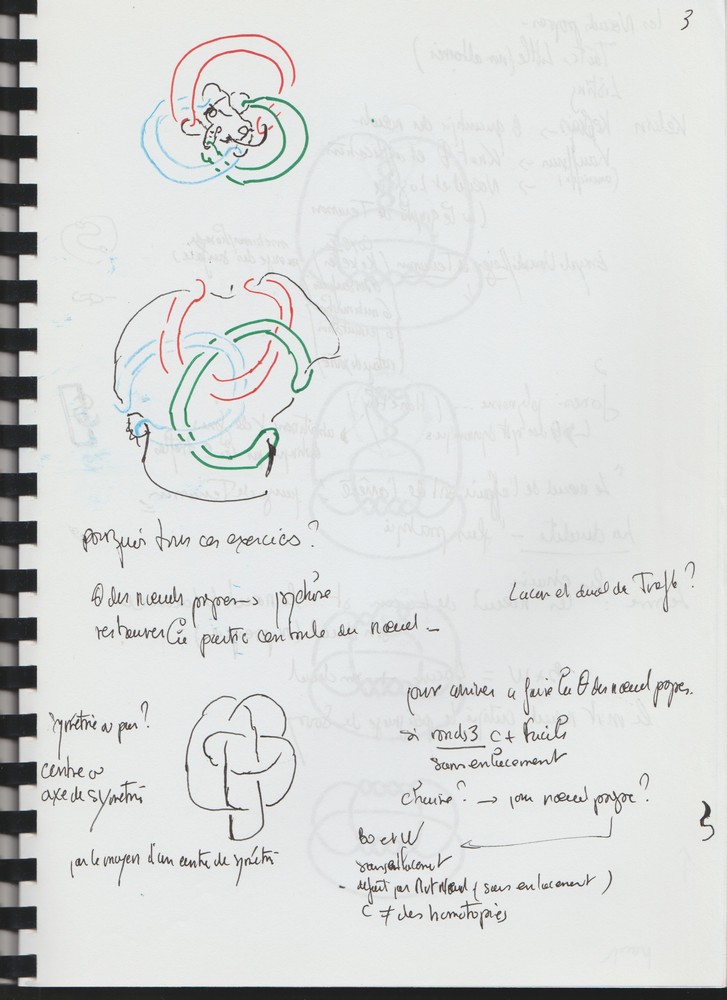 3
pourquoi tous ces exercices ?
θ des nœuds propres → psychose
retrouver la partie centrale du nœud –
Lacan et dual de Trefle ?
symétrie ou pas ?
centre ou
axe de symétrie
par le moyen d'un centre de symétrie
pour arriver à faire la θ des nœuds propes.
si ronds 3 c + facile
sans enlacement
chaine ? → pour nœud propre ?
Bo et W
sans enlacement
- défait par Mvt Nœud (sans enlacement)
C ≠ des homotopies
3